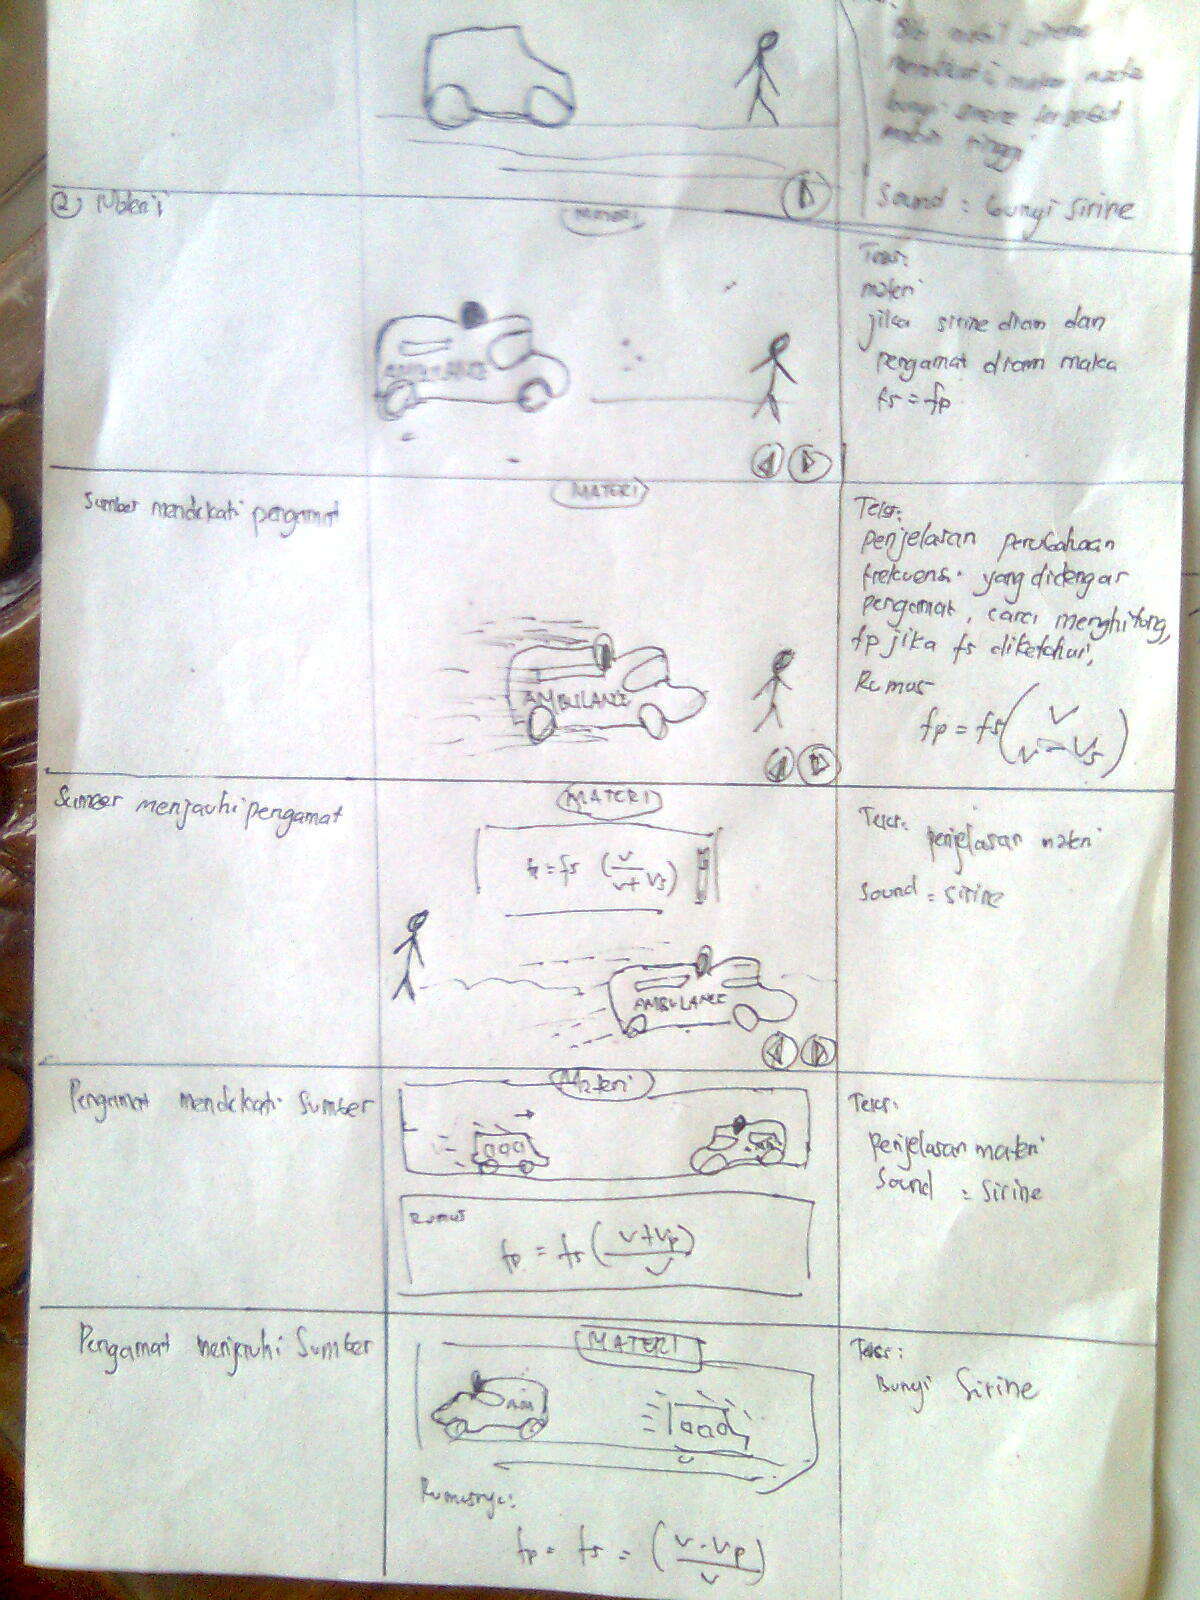 Sound : bunyi sirine
② Materi
MATERI
Teks:
materi
jika sirine diam dan
pengamat diam maka
fs = fp
AMBULANCE
Sumber mendekati pengamat
MATERI
AMBULANCE
Teks:
penjelasan perubahaan
frekuensi yang didengar
pengamat, cara menghitung
fp jika fs diketahui,
Rumus
fp = fs (v / v - vs)
Sumber menjauhi pengamat
MATERI
fp = fs (v / v + vs)
AMBULANCE
Teks: penjelasan materi
Sound : sirine
Pengamat mendekati Sumber
Materi
Rumus
fp = fs (v + vp / v)
Teks:
penjelasan materi
Sound : Sirine
Pengamat menjauhi Sumber
MATERI
Rumusnya:
fp = fs = (v - vp / v)
Teks:
Bunyi Sirine